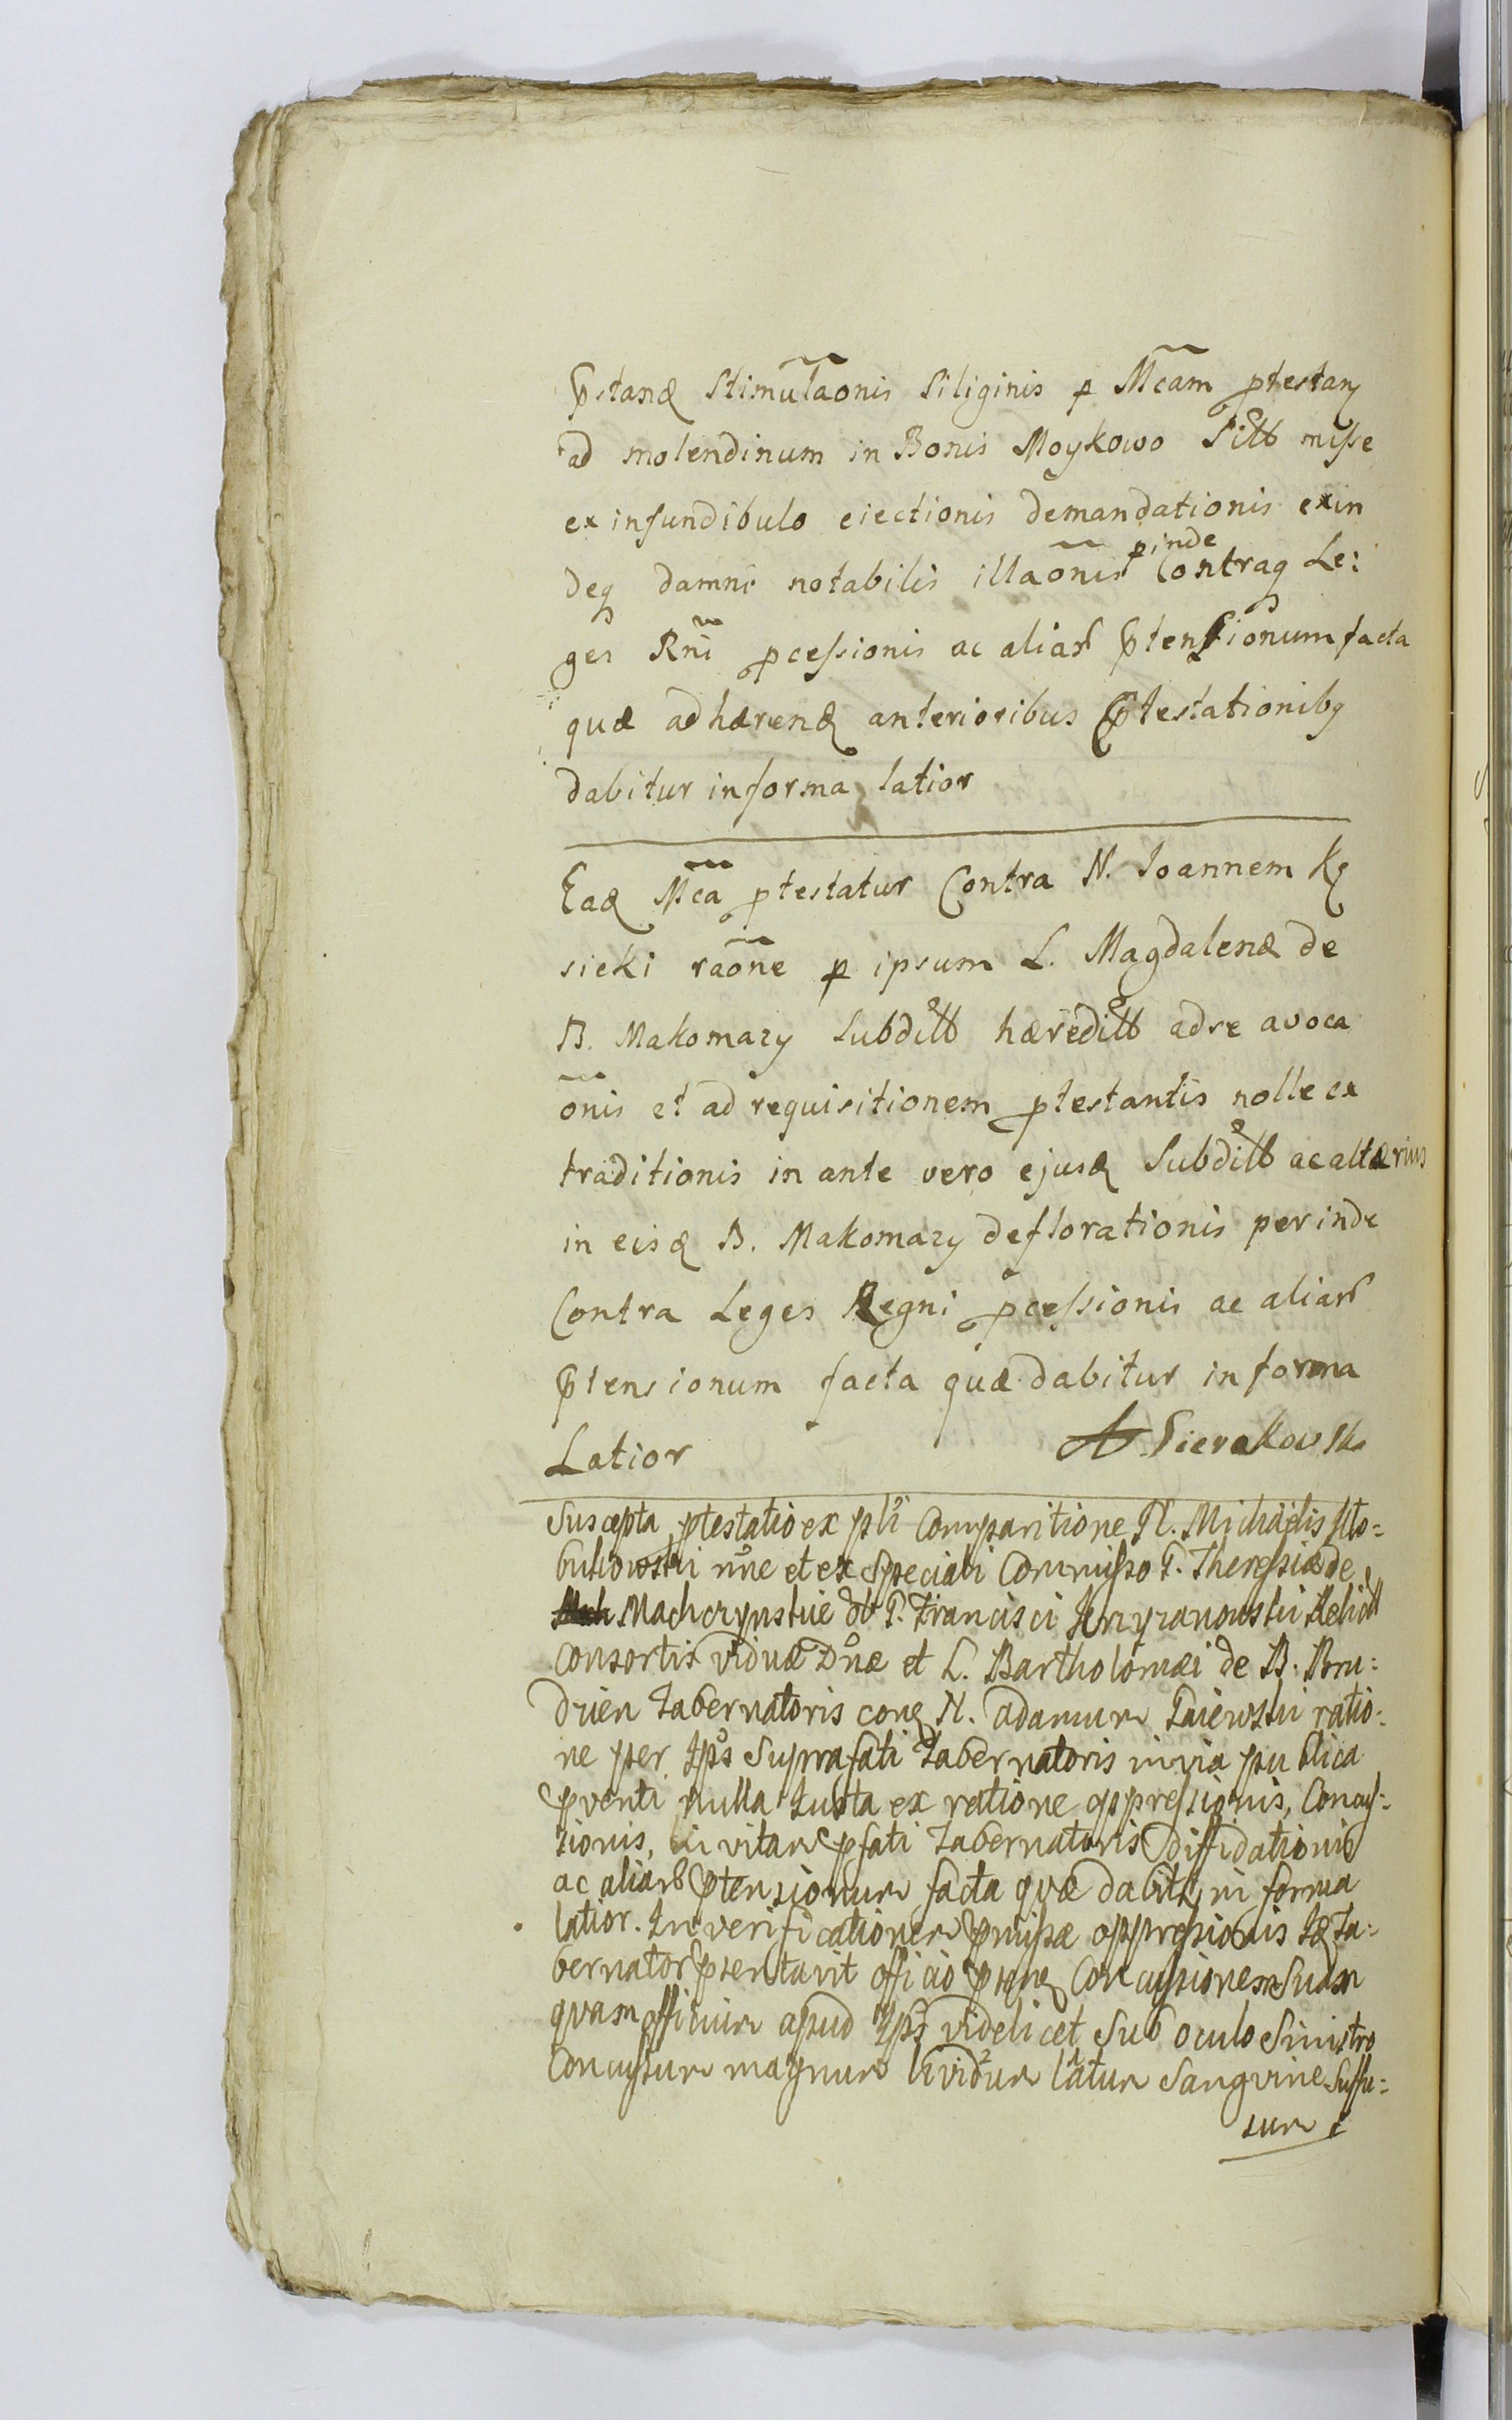 Pstand Stimulaonis Siliginis p Mcam ptestan
ad molendinum in Bonis Moykowo Sitt misse
ex infundibulo eiectionis demandationis exin
deq damni notabilis illaonis pinde Contraq Le:
ges Rni pcessionis ac aliar ptensionum facta
quæ adhærend anterioribus ptestationibq
dabitur in forma latior
Ead Mca ptestatur Contra N. Ioannem
sieki raone p ipsum L. Magdalenæ de
B. Makomazy Subditt hæreditt ad se avoca
onis et ad requisitionem ptestantis nolle ex
traditionis in ante vero ejusd Subditt ac altærius
in eisd B. Makomazy deflorationis perinde
Contra Leges Regni pcessionis ac aliar
ptensionum facta quæ dabitur in forma
Latior A Sierakowski
Suscepta ptestatio ex pli Comparitione N. Michaelis
nne et ex Speciali Commisso P. Theresiæ de
P. Francisci
consortis viduæ Dnæ et L. Bartholomæi de B. Bru:
dzien Tabernatoris con N. Adamum ratio:
ne per Ips Suprafati Tabernatoris in via publica
pventi nulla Iusta ex ratione oppressionis, Concus:
sionis, in vitam pfati Tabernatoris diffidationis
ac aliar ptensionum facta quæ dabit in forma
latior. In verificationem pmissæ oppressionis Id Ta:
bernator psentavit officio psent Concussionem Suam
quam officium apud Ips videlicet Sub oculo Sinistro
Concussum magnum lividum latum Sangvine Suffu:
sum